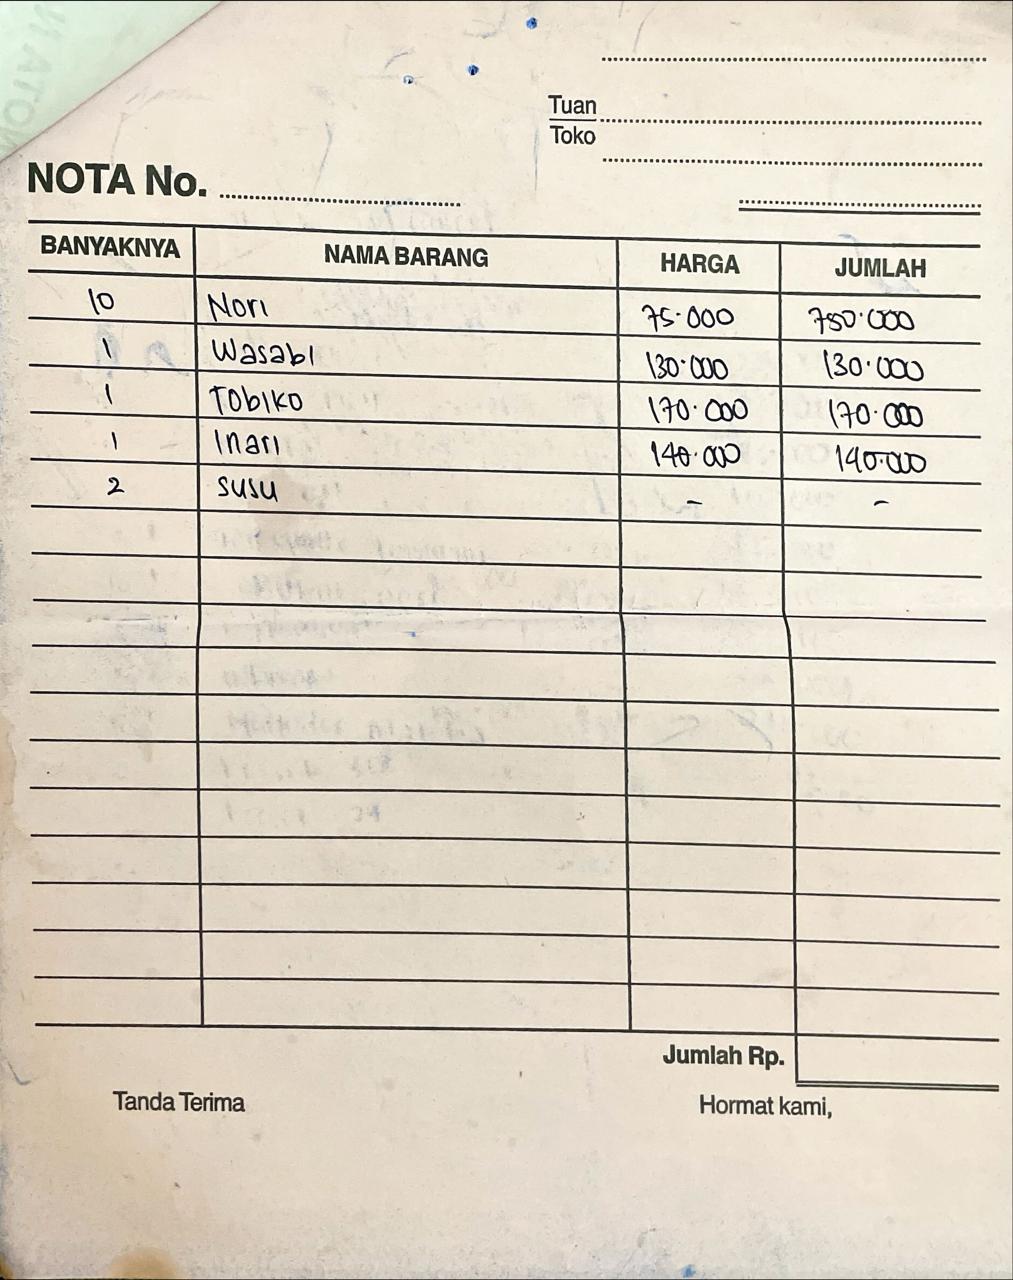 Tuan
Toko
NOTA No.
BANYAKNYA NAMA BARANG HARGA JUMLAH
10 Nori 75.000 750.000
1 Wasabi 130.000 130.000
1 Tobiko 170.000 170.000
1 Inari 140.000 140.000
2 susu - -
Jumlah Rp.
Tanda Terima Hormat kami,